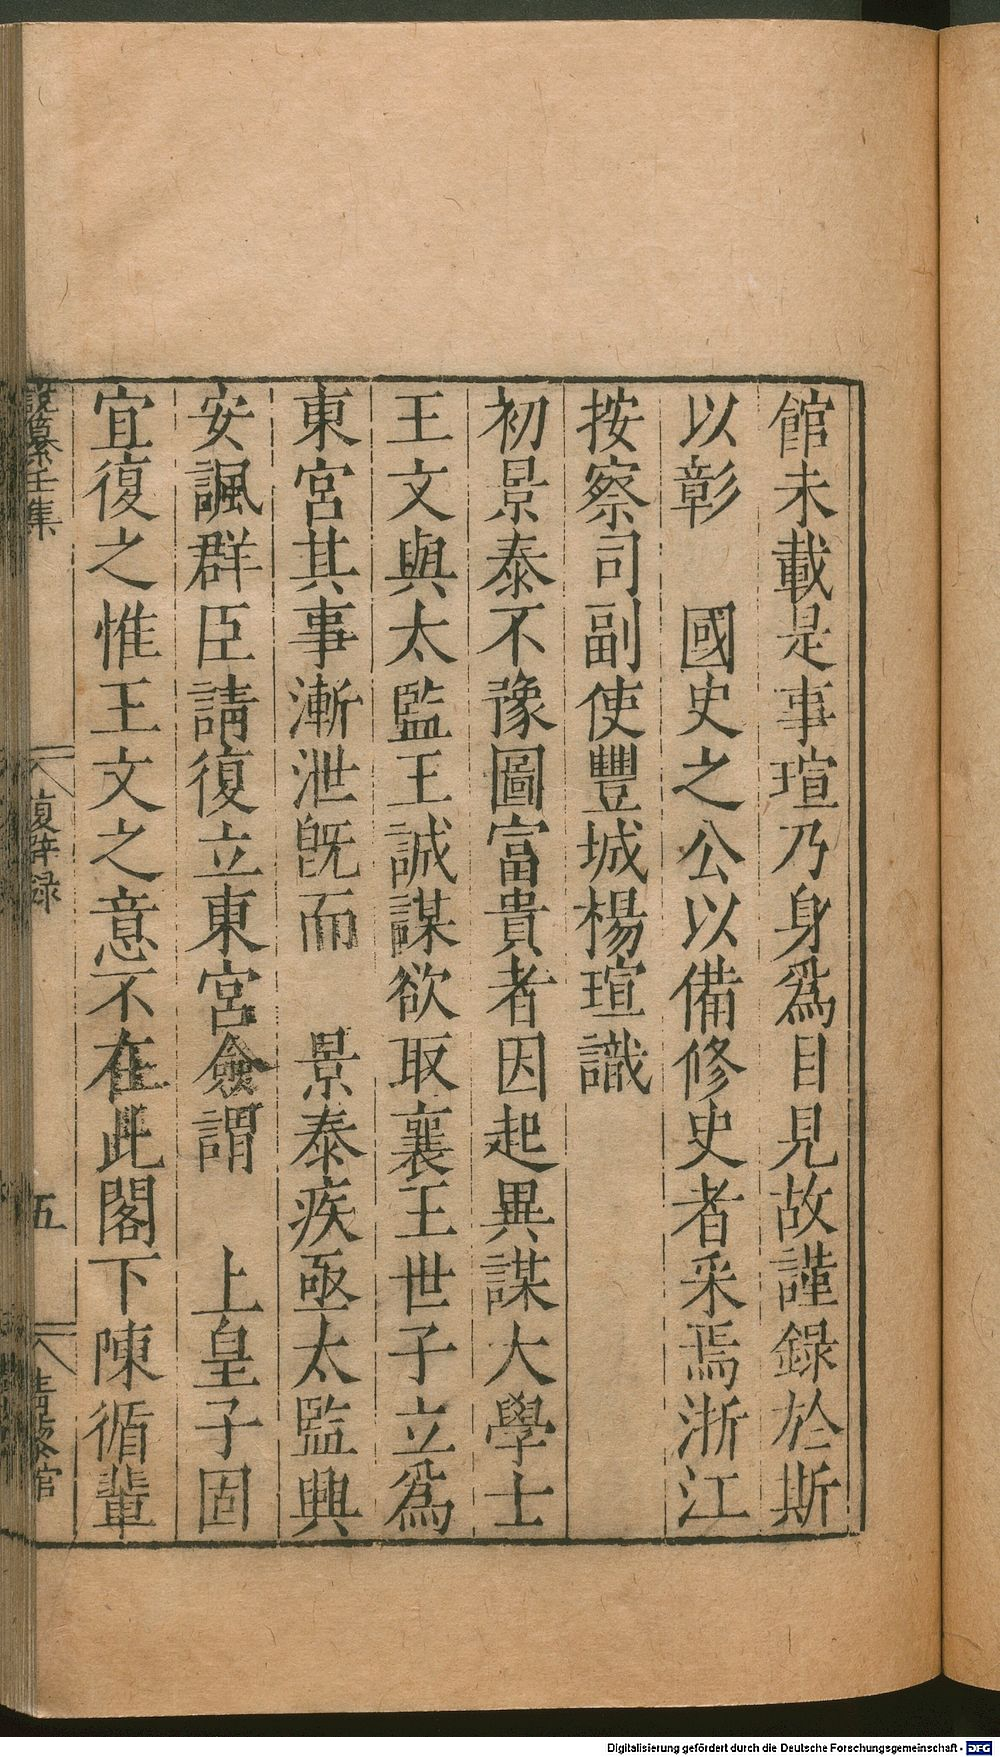 館未載是事瑄乃身爲目見故謹錄於斯
以彰　國史之公以備修史者采焉浙江
按察司副使豐城楊瑄識
初景泰不豫圖富貴者因起異謀大學士
王文與太監王誠謀欲取襄王世子立爲
東宮其事漸泄旣而　景泰疾亟太監興
安諷群臣請復立東宮僉謂　上皇子固
宜復之惟王文之意不在此閣下陳循輩
說纂壬集
復辟録
五
Digitalisierung gefördert durch die Deutsche Forschungsgemeinschaft - DFG